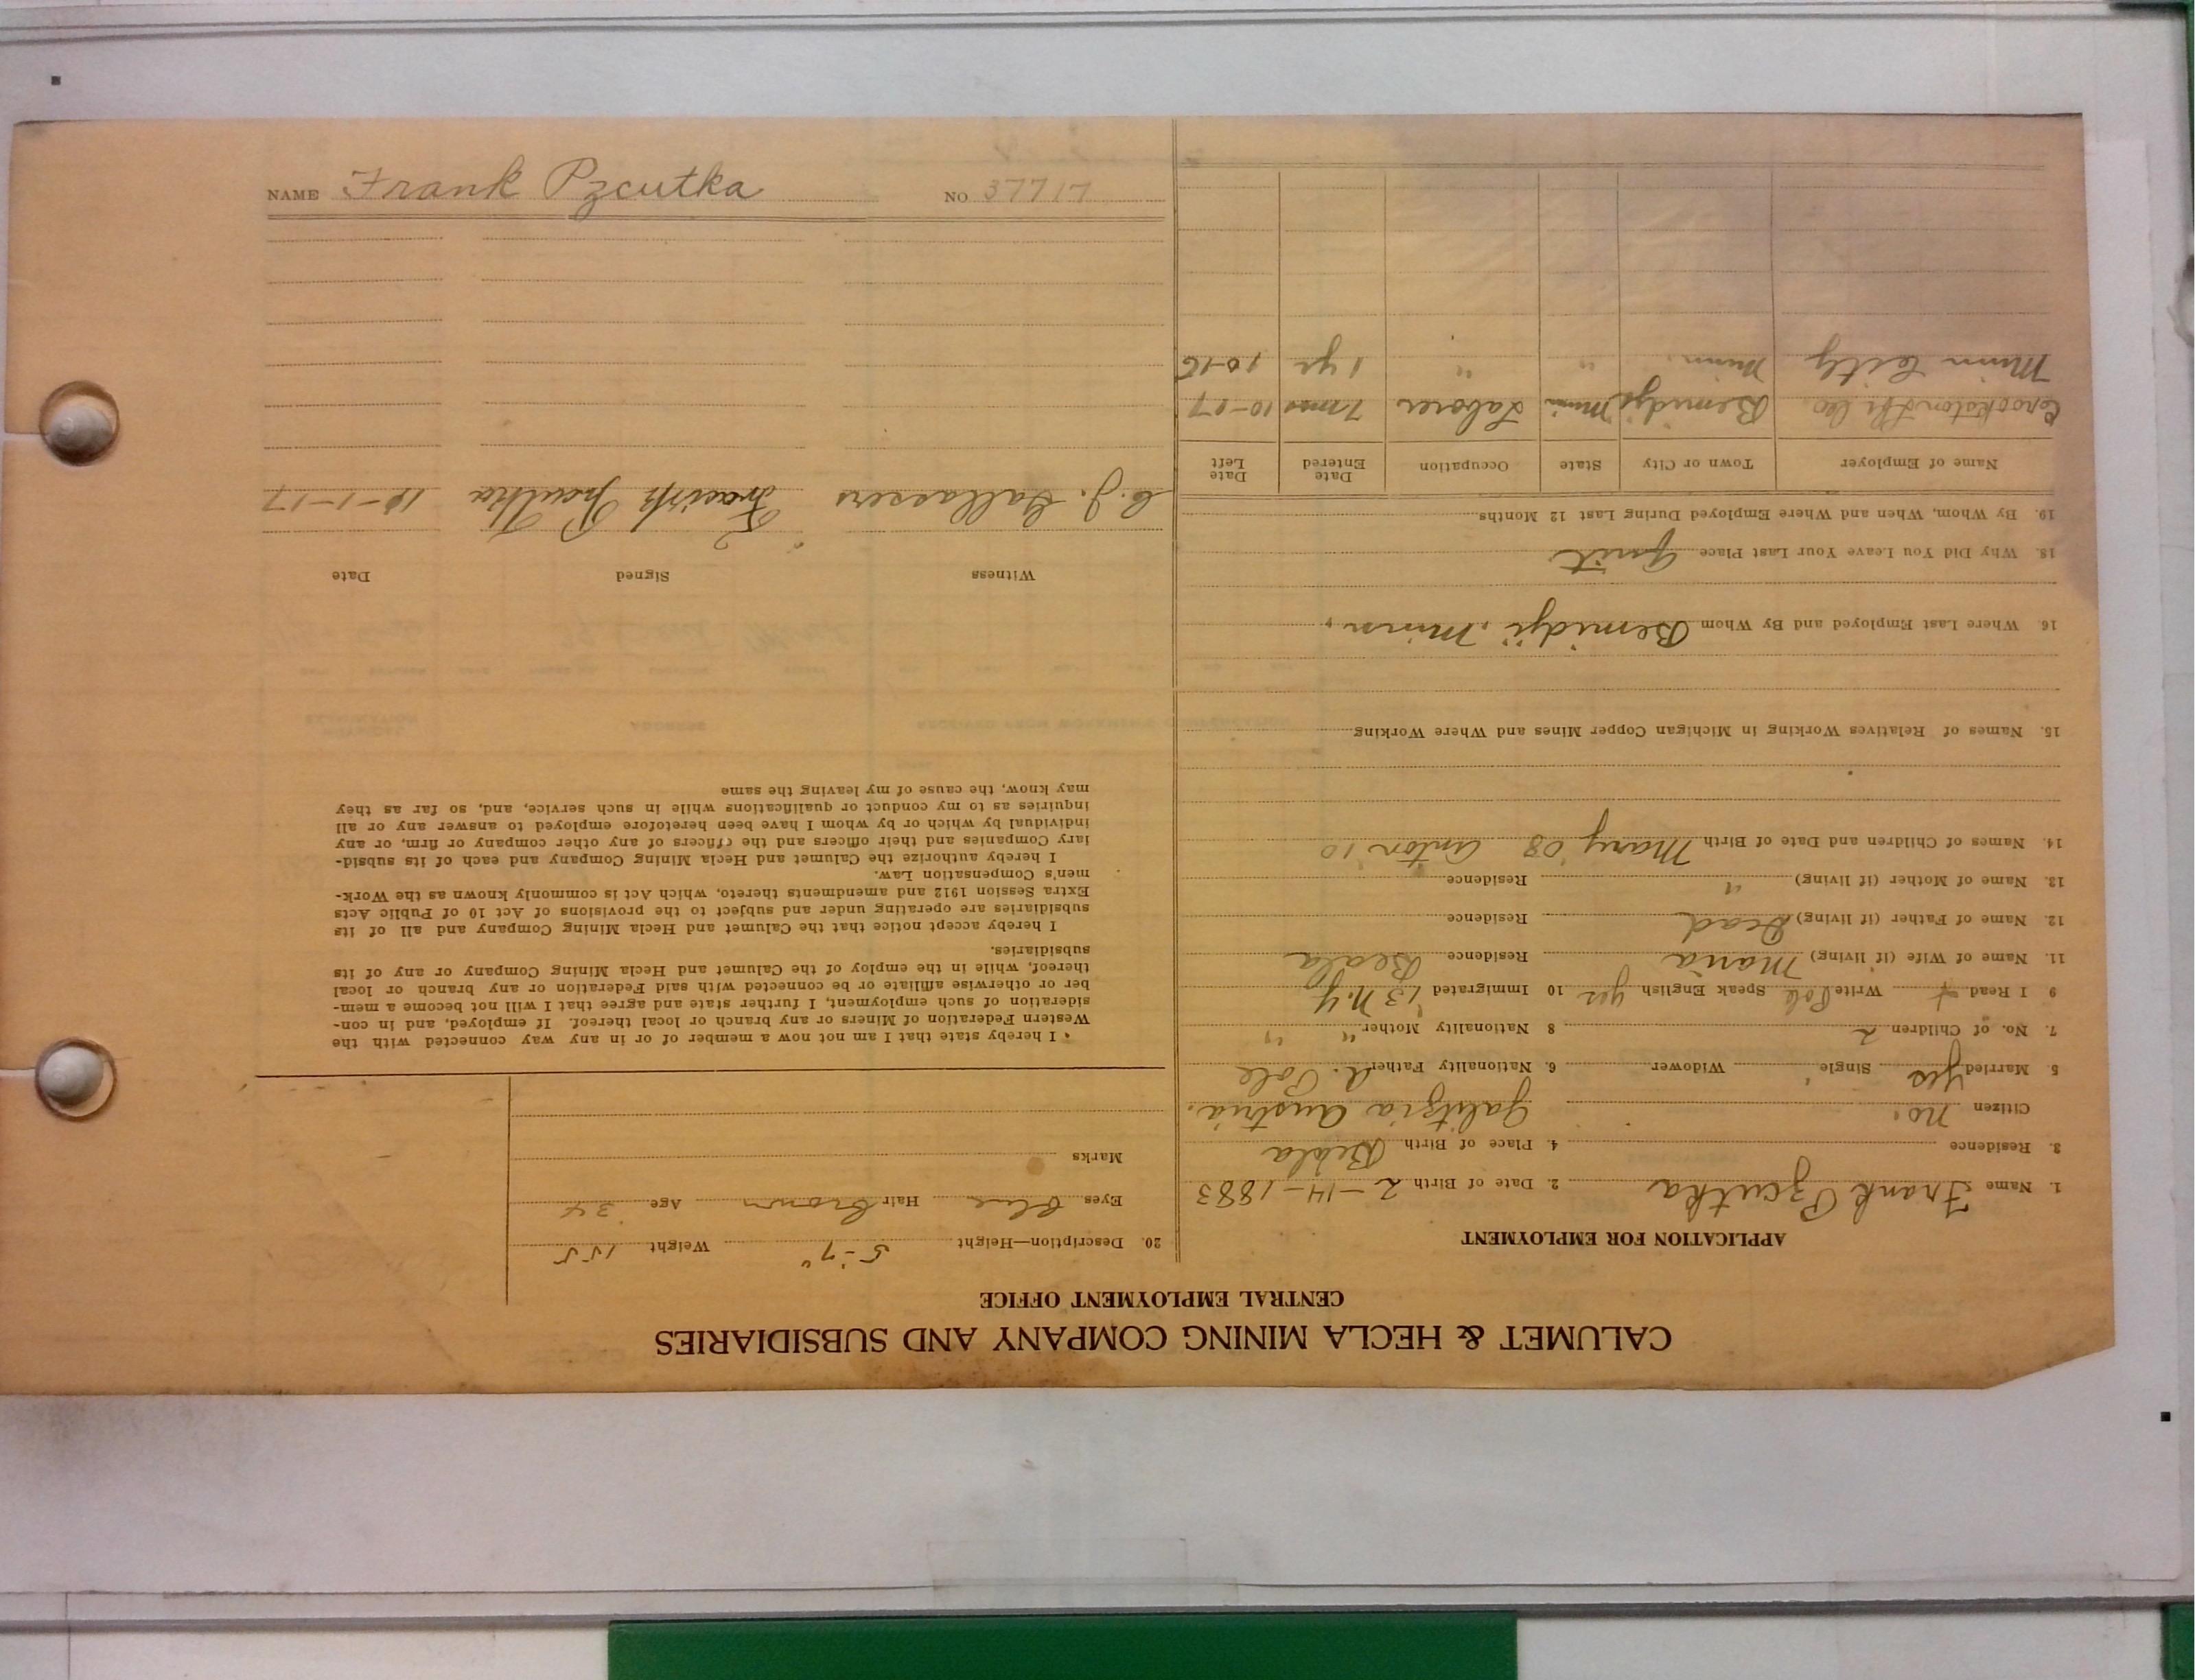 CALUMET & HECLA MINING COMPANY AND SUBSIDIARIES
CENTRAL EMPLOYMENT OFFICE
APPLICATION FOR EMPLOYMENT
1. Name Frank Pzcutka 2. Date of Birth 2-14-1883
3. Residence 4. Place of Birth Beala
Citizen no. Galitzia Austria.
5. Married yes Single Widower 6. Nationality Father A. Pole
7. No. of Children 2 8 Nationality Mother " "
9 I Read + Write Pole Speak English yes 10 Immigrated '13 N.Y
11. Name of Wife (if living) Maria Residence Beala
12. Name of Father (if living) Dead Residence
13. Name of Mother (if living) " Residence
14. Names of Children and Date of Birth Mary '08 Anton '10
15. Names of Relatives Working in Michigan Copper Mines and Where Working
16. Where Last Employed and By Whom Bemidji, Minn.
18. Why Did You Leave Your Last Place Quit
19. By Whom, When and Where Employed During Last 12 Months
Name of Employer Town or City State Occupation Date Entered Date Left
Crookston Co Bemidji Minn Laborer 7 mos 10-17
Minn City Minn. " " 1 yr 10-16
20. Description—Height 5-7" Weight 155
Eyes Blue Hair Brown Age 34
Marks
I hereby state that I am not now a member of or in any way connected with the
Western Federation of Miners or any branch or local thereof. If employed, and in con-
sideration of such employment, I further state and agree that I will not become a mem-
ber or otherwise affiliate or be connected with said Federation or any branch or local
thereof, while in the employ of the Calumet and Hecla Mining Company or any of its
subsidiaries.
I hereby accept notice that the Calumet and Hecla Mining Company and all of its
subsidiaries are operating under and subject to the provisions of Act 10 of Public Acts
Extra Session 1912 and amendments thereto, which Act is commonly known as the Work-
men's Compensation Law.
I hereby authorize the Calumet and Hecla Mining Company and each of its subsid-
iary Companies and their officers and the officers of any other company or firm, or any
individual by which or by whom I have been heretofore employed to answer any or all
inquiries as to my conduct or qualifications while in such service, and, so far as they
may know, the cause of my leaving the same
Witness Signed Date
C. J. Pzcutka 10-1-17
NAME Frank Pzcutka NO 37717